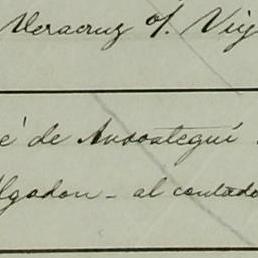 Veracruz o/. Vig
é de Aurostegui
lgodon - al contado